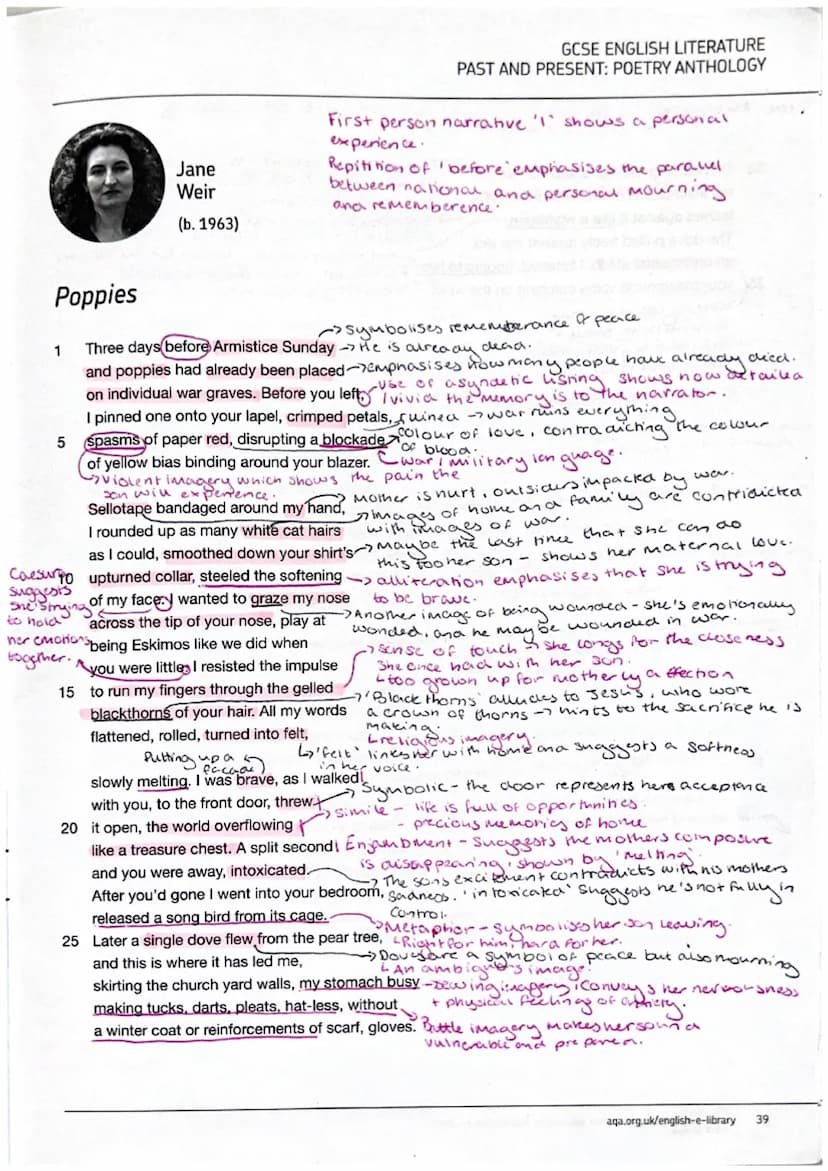 GCSE ENGLISH LITERATURE
PAST AND PRESENT: POETRY ANTHOLOGY
First person narrative 'I' shows a personal
experience.
Repitition of 'before' emphasises the parallel
between national and personal mourning
and rememberence.
Jane
Weir
(b. 1963)
Poppies
→ Symbolises rememberance & peace
1 Three days before Armistice Sunday → He is already dead.
and poppies had already been placed → emphasises how many people have already died.
on individual war graves. Before you left, Use of asyndetic listing shows how detailed
/vivid the memory is to the narrator.
I pinned one onto your lapel, crimped petals, ruined → war ruins everything
5 spasms of paper red, disrupting a blockade → colour of love, contradicting the colour
of blood.
of yellow bias binding around your blazer. War/military language.
→ Violent imagery which shows the pain the
son will experience.
Sellotape bandaged around my hand, → Mother is hurt, outsiders impacted by war.
→ Images of home and family are contridicted
with images of war.
I rounded up as many white cat hairs
as I could, smoothed down your shirt's → Maybe the last time that she can do
this for her son - shows her maternal love.
10 upturned collar, steeled the softening → alliteration emphasises that she is trying
to be brave.
of my face. I wanted to graze my nose
Caesura
suggests
she's trying
to hold
her emotions
together.
across the tip of your nose, play at → Another image of being wounded - she's emotionally
wonded, and he may be wounded in war.
being Eskimos like we did when
you were little. I resisted the impulse → sense of touch → she longs for the closeness
she once had with her son.
↳ too grown up for motherly affection
15 to run my fingers through the gelled
blackthorns of your hair. All my words → 'Blackthorns' alludes to Jesus, who wore
a crown of thorns → hints to the sacrifice he is
making.
↳ religious imagery.
flattened, rolled, turned into felt,
↳ 'felt' links her with home and suggests a softness
in her voice.
Putting up a
facade
slowly melting. I was brave, as I walked
with you, to the front door, threw → Symbolic - the door represents here acceptance
20 it open, the world overflowing → simile - life is full of opportunities.
- precious memories of home
like a treasure chest. A split second Enjambment - Suggests the mothers composure
is disappearing, shown by 'melting'
and you were away, intoxicated. → The sons excitement contradicts with his mothers
sadness. 'intoxicated' suggests he's not fully in
control.
After you'd gone I went into your bedroom,
released a song bird from its cage. → Metaphor - symbolises her son leaving.
↳ Right for him, hard for her.
25 Later a single dove flew from the pear tree,
→ Doves are a symbol of peace but also mourning
↳ An ambiguous image.
and this is where it has led me,
skirting the church yard walls, my stomach busy - sewing imagery, conveys her nervousness
+ physical feelings of anxiety.
making tucks, darts, pleats, hat-less, without
a winter coat or reinforcements of scarf, gloves. Battle imagery makes her sound
vulnerable and
aqa.org.uk/english-e-library 39